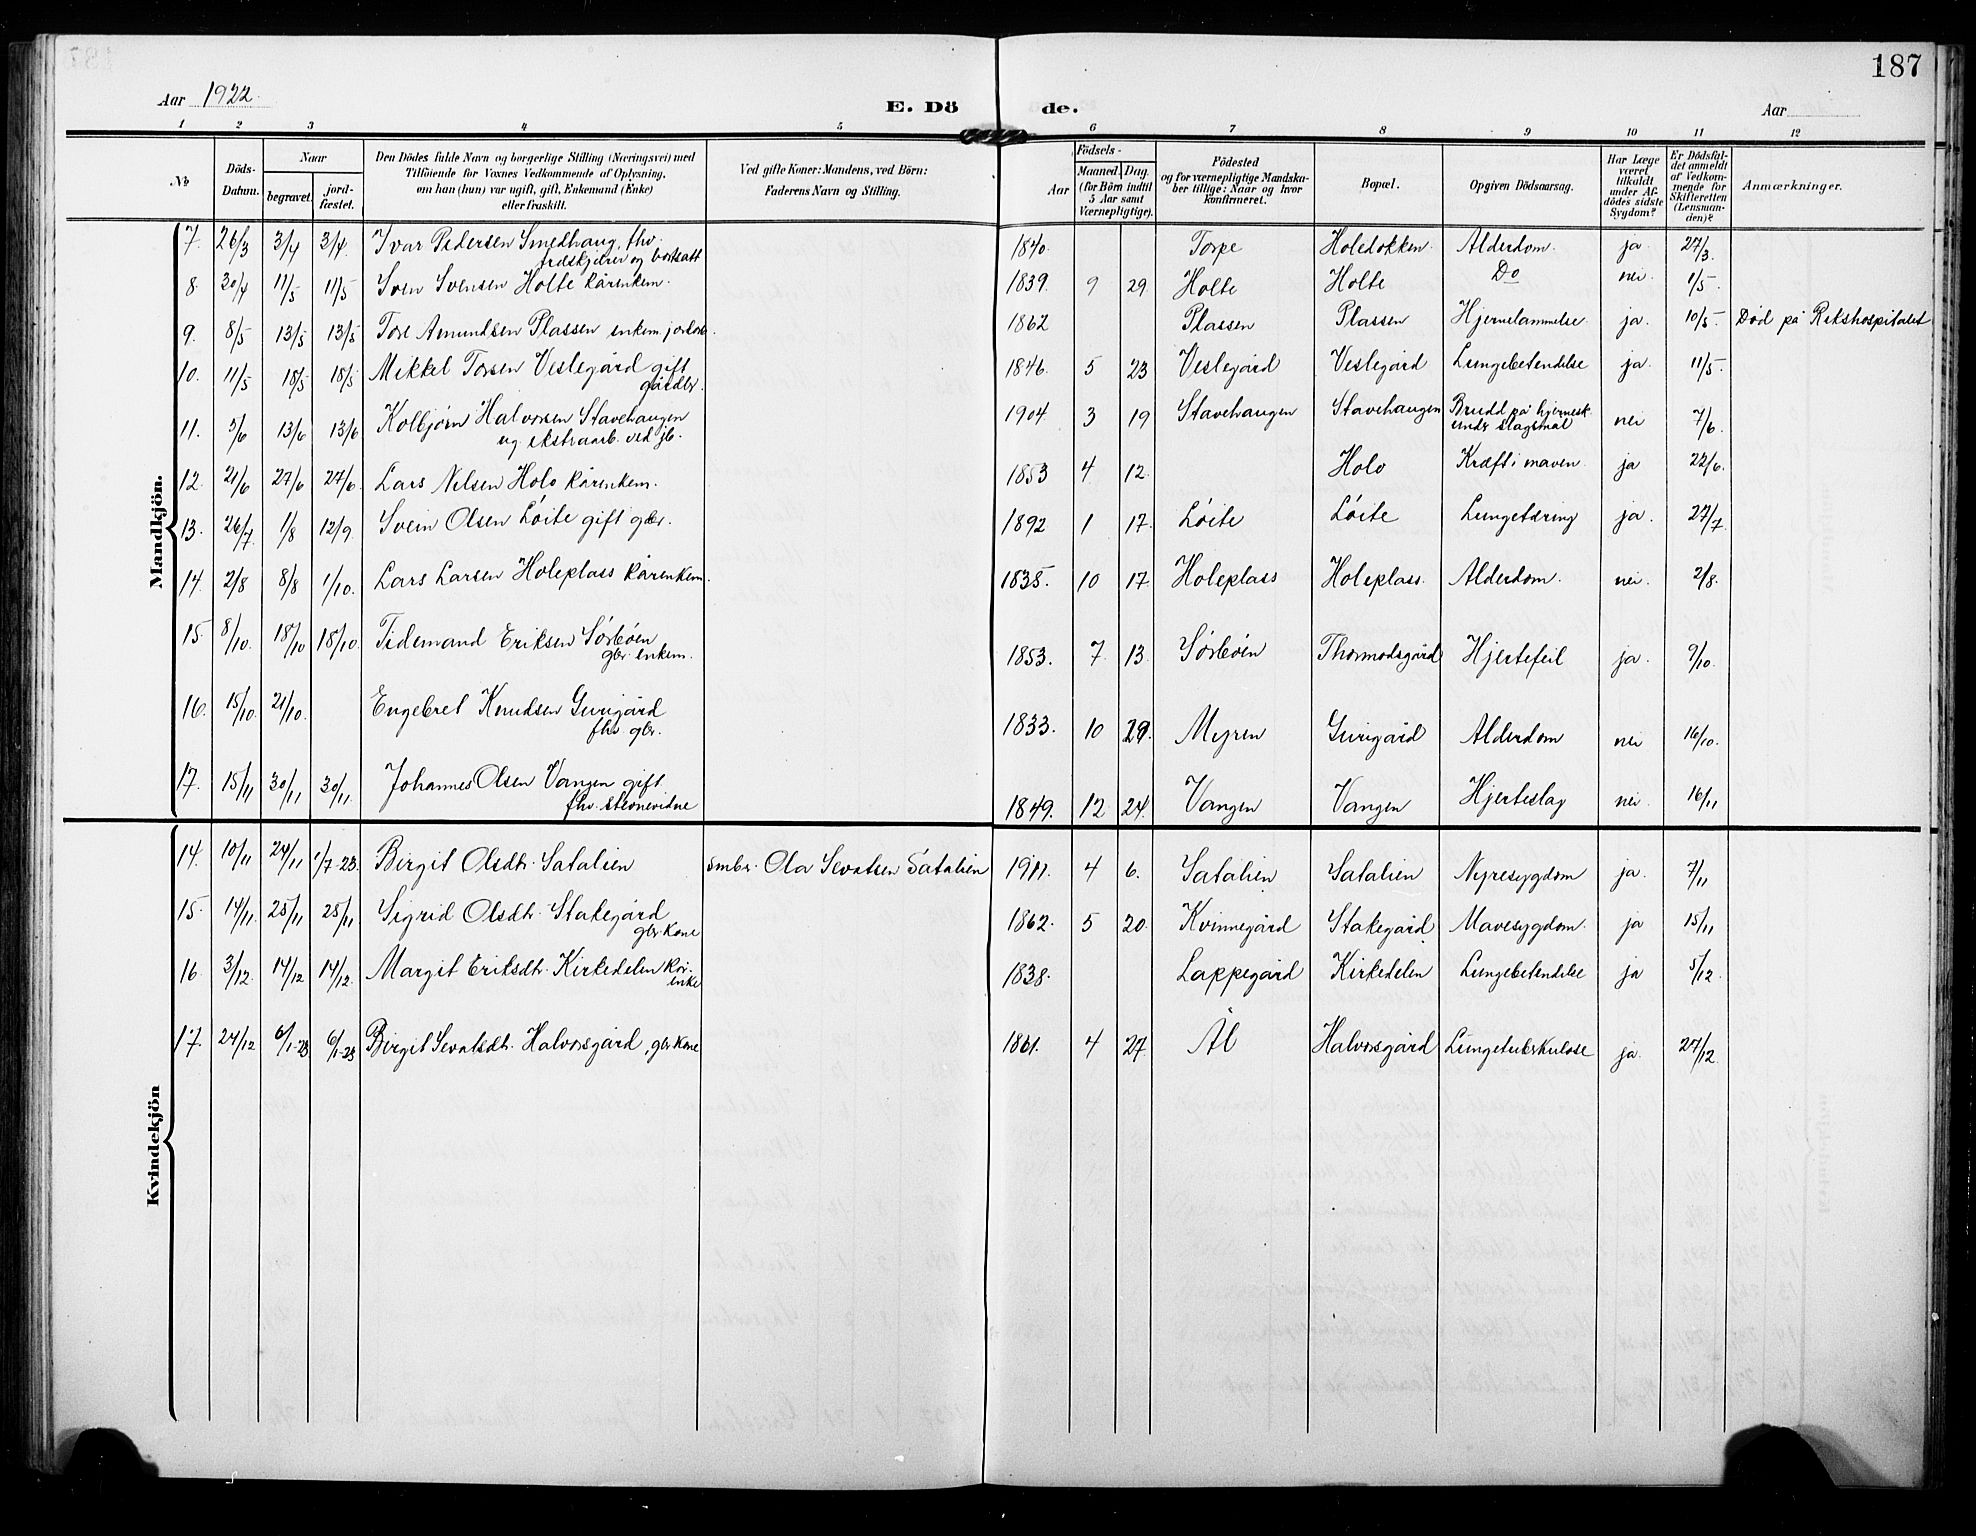 187
Aar 1922.
E. Dö de.
Aar
1 2 3 4 5 6 7 8 9 10 11 12
No
Döds-Datum.
Naar
begravet.
jord-fæstet.
Den Dödes fulde Navn og borgerlige Stilling (Næringsvei) med
Tilföiende for Voxnes Vedkommende af Oplysning,
om han (hun) var ugift, gift, Enkemand (Enke)
eller fraskilt.
Ved gifte Koner: Mandens, ved Börn:
Faderens Navn og Stilling.
Födsels-
Aar
Maaned. Dag.
(for Börn indtil
5 Aar samt
Værnepligtige).
Födested
og for værnepligtige Mandska-
ber tillige: Naar og hvor
konfirmeret.
Bopæl.
Opgiven Dödsaarsag.
Har Læge
været
tilkaldt
under Af-
dödes sidste
Sygdom?
Er Dödsfal-
det anmeldt
af Vedkom-
mende for
Skifteretten
(Lensman-
den)?
Anmærkninger.
Mandkjön.
7. 26/3 3/4 3/4. Ivar Pedersen Smedhaug, fhv. træskjærer og bortsatt 1840. Torpe Holedokken. Alderdom. ja. 27/3.
8. 30/4 11/5 11/5 Sven Svensen Holte kårenkem. 1839. 9 29. Holte Holte Do nei. 1/5.
9. 8/5 13/5 13/5 Tore Amundsen Plassen enkem. 1862 Plassen Plassen Hjernelammelse. ja. 10/5. Død på Rikshospitalet
10. 11/5 18/5 18/5 Mikkel Torsen Veslegård gift gårdbr. 1846. 5 23 Veslegård Veslegård Lungebetendelse ja. 11/5.
11. 5/6 13/6 13/6 Kolbjørn Halvorsen Stavehaugen ug. ekstraarb. ved jb. 1904 3 19 Stavehaugen Stavehaugen Brudd på hjernesk. under slagsmål nei 7/6.
12. 21/6 27/6 27/6. Lars Nilsen Holo kårenkem. 1853 4 12. Holo Kræft i maven. ja 22/6.
13. 26/7. 1/8 12/9. Svein Olsen Löite gift gbr. 1892 1 17. Löite Löite Lungetæring ja. 27/7.
14. 2/8 8/8 1/10. Lars Larsen Holeplass kårenkem. 1835. 10 17. Holeplass Holeplass. Alderdom. nei. 2/8.
15. 8/10. 18/10 18/10. Tidemand Eriksen Sørbøen gbr. enkem. 1853. 7 13. Sørbøen Thormodsgård Hjertefeil ja. 9/10.
16. 15/10. 21/10. Engebret Knudsen Gurigård fhv. gbr. 1833. 10 29. Myren Gurigård Alderdom nei 16/10.
17. 15/11 30/11 30/11. Johannes Olsen Vangen gift. fhv. stevnevidne 1849. 12 24. Vangen Vangen Hjerteslag nei. 16/11
Kvindekjön
14. 10/11 24/11 1/7-23 Birgit Olsdtr. Satalien smbr. Ola Sevatsen Satalien 1911. 4 6. Satalien Satalien Nyresygdom ja. 7/11
15. 14/11. 25/11 25/11 Sigrid Olsdtr. Stakegård gbr. kone 1862. 5 20. Kvinnegård Stakegård Mavesygdom. ja 15/11
16 3/12. 14/12 14/12. Margit Eriksdtr. Kirkedelen kår-enke 1838. Lappegård Kirkedelen Lungebetendelse ja 5/12.
17. 24/12 6/1-23 6/1-23 Birgit Sevatsdtr. Halvorsgård, gbr. kone 1861. 4 27. Ål Halvorsgård Lungetuberkulose ja. 27/12.